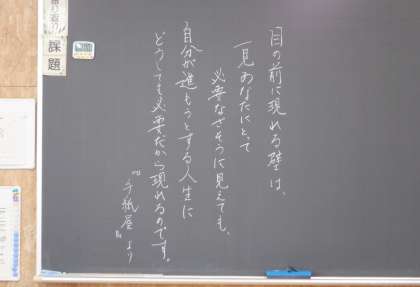 目の前に現れる壁は、
一見あなたにとって
必要なさそうに見えても、
自分が進もうとする人生に
どうしても必要だから現れるのです。
『手紙屋』より
課題